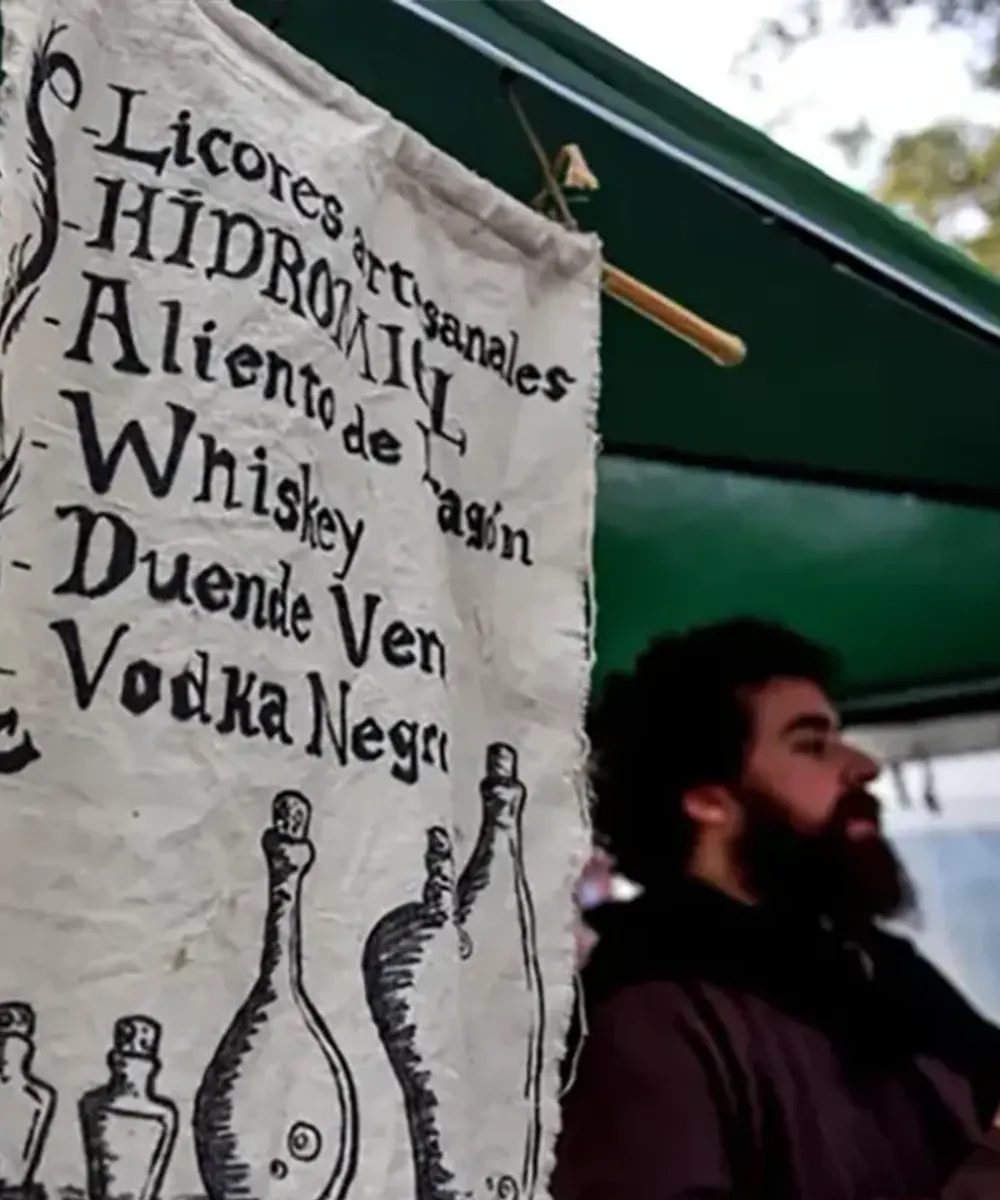 - Licores artisanales
- HIDROMIL
- Aliento de ragón
- Whiskey
- Duende Ven
Vodka Negr